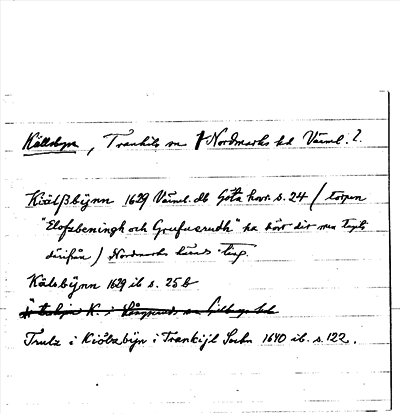 Källsbyn, Trankils sn Nordmarks hd Värml. ?.
Kiälßbÿnn 1629 Värml. db Göta hovr. s. 24 / torpen
"Elofzbeningh och Grufuerudh" ha hört dir men tagits
därifrån) Nordmarks härads ting.
Kälsbÿnn 1629 ib s. 25 b
Trulz i Kiölzbÿn i Trankijl Sochn 1640 ib. s. 122.